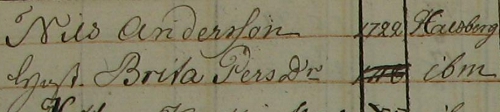 Nils Andersson 1722 Halsberg
Hust. Brita Persdr ibm